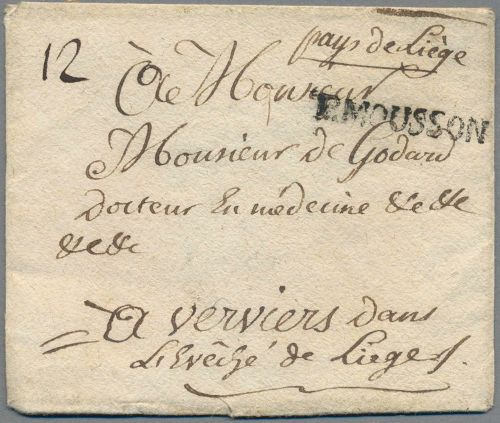 pays de Liège
12
A Monsieur
P.MOUSSON
Monsieur de Godard
docteur En médecine &c &c
&c &c
A verviers dans
L'Evêché de Liege